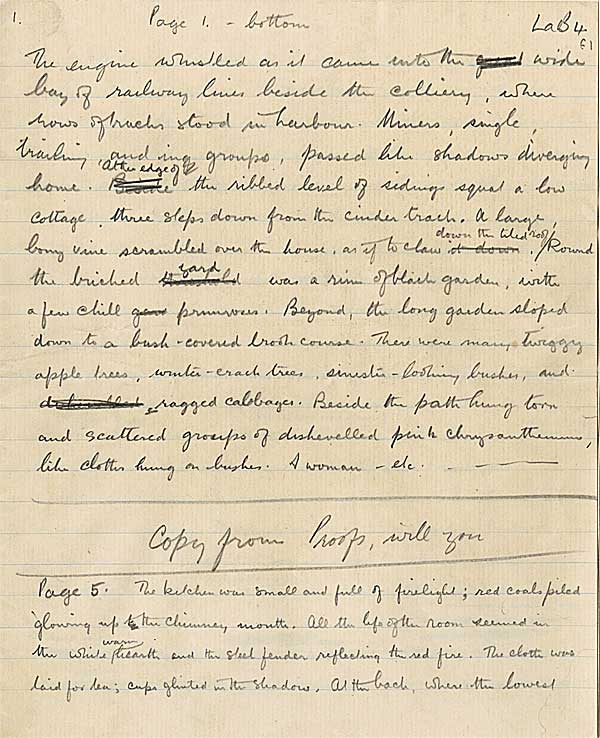 1.
Page 1. - bottom
LaB 4
f1
The engine whistled as it came into the great wide
bay of railway lines beside the colliery, where
rows of trucks stood in harbour. Miners, single,
trailing and in groups, passed like shadows diverging
At the edge of
home. Beside the ribbed level of sidings squat a low
cottage, three steps down from the cinder track. A large,
down the tiled roof
bony vine scrambled over the house, as if to claw it down. / Round
yard
the bricked was a rim of black garden, with
a few chill primroses. Beyond, the long garden sloped
down to a bush-covered brook course. There were many twiggy
apple trees, winter-crack trees, sinister-looking bushes, and
dishevelled ragged cabbages. Beside the path hung torn
and scattered groups of dishevelled pink chrysanthemums,
like cloths hung on bushes. A woman - etc.
Copy from Proofs, will you
Page 5. The kitchen was small and full of firelight; red coals piled
glowing up to the chimney mouth. All the life of the room seemed in
warm
the white hearth and the steel fender reflecting the red fire. The cloth was
laid for tea; cups glinted in the shadow. At the back, where the lowest